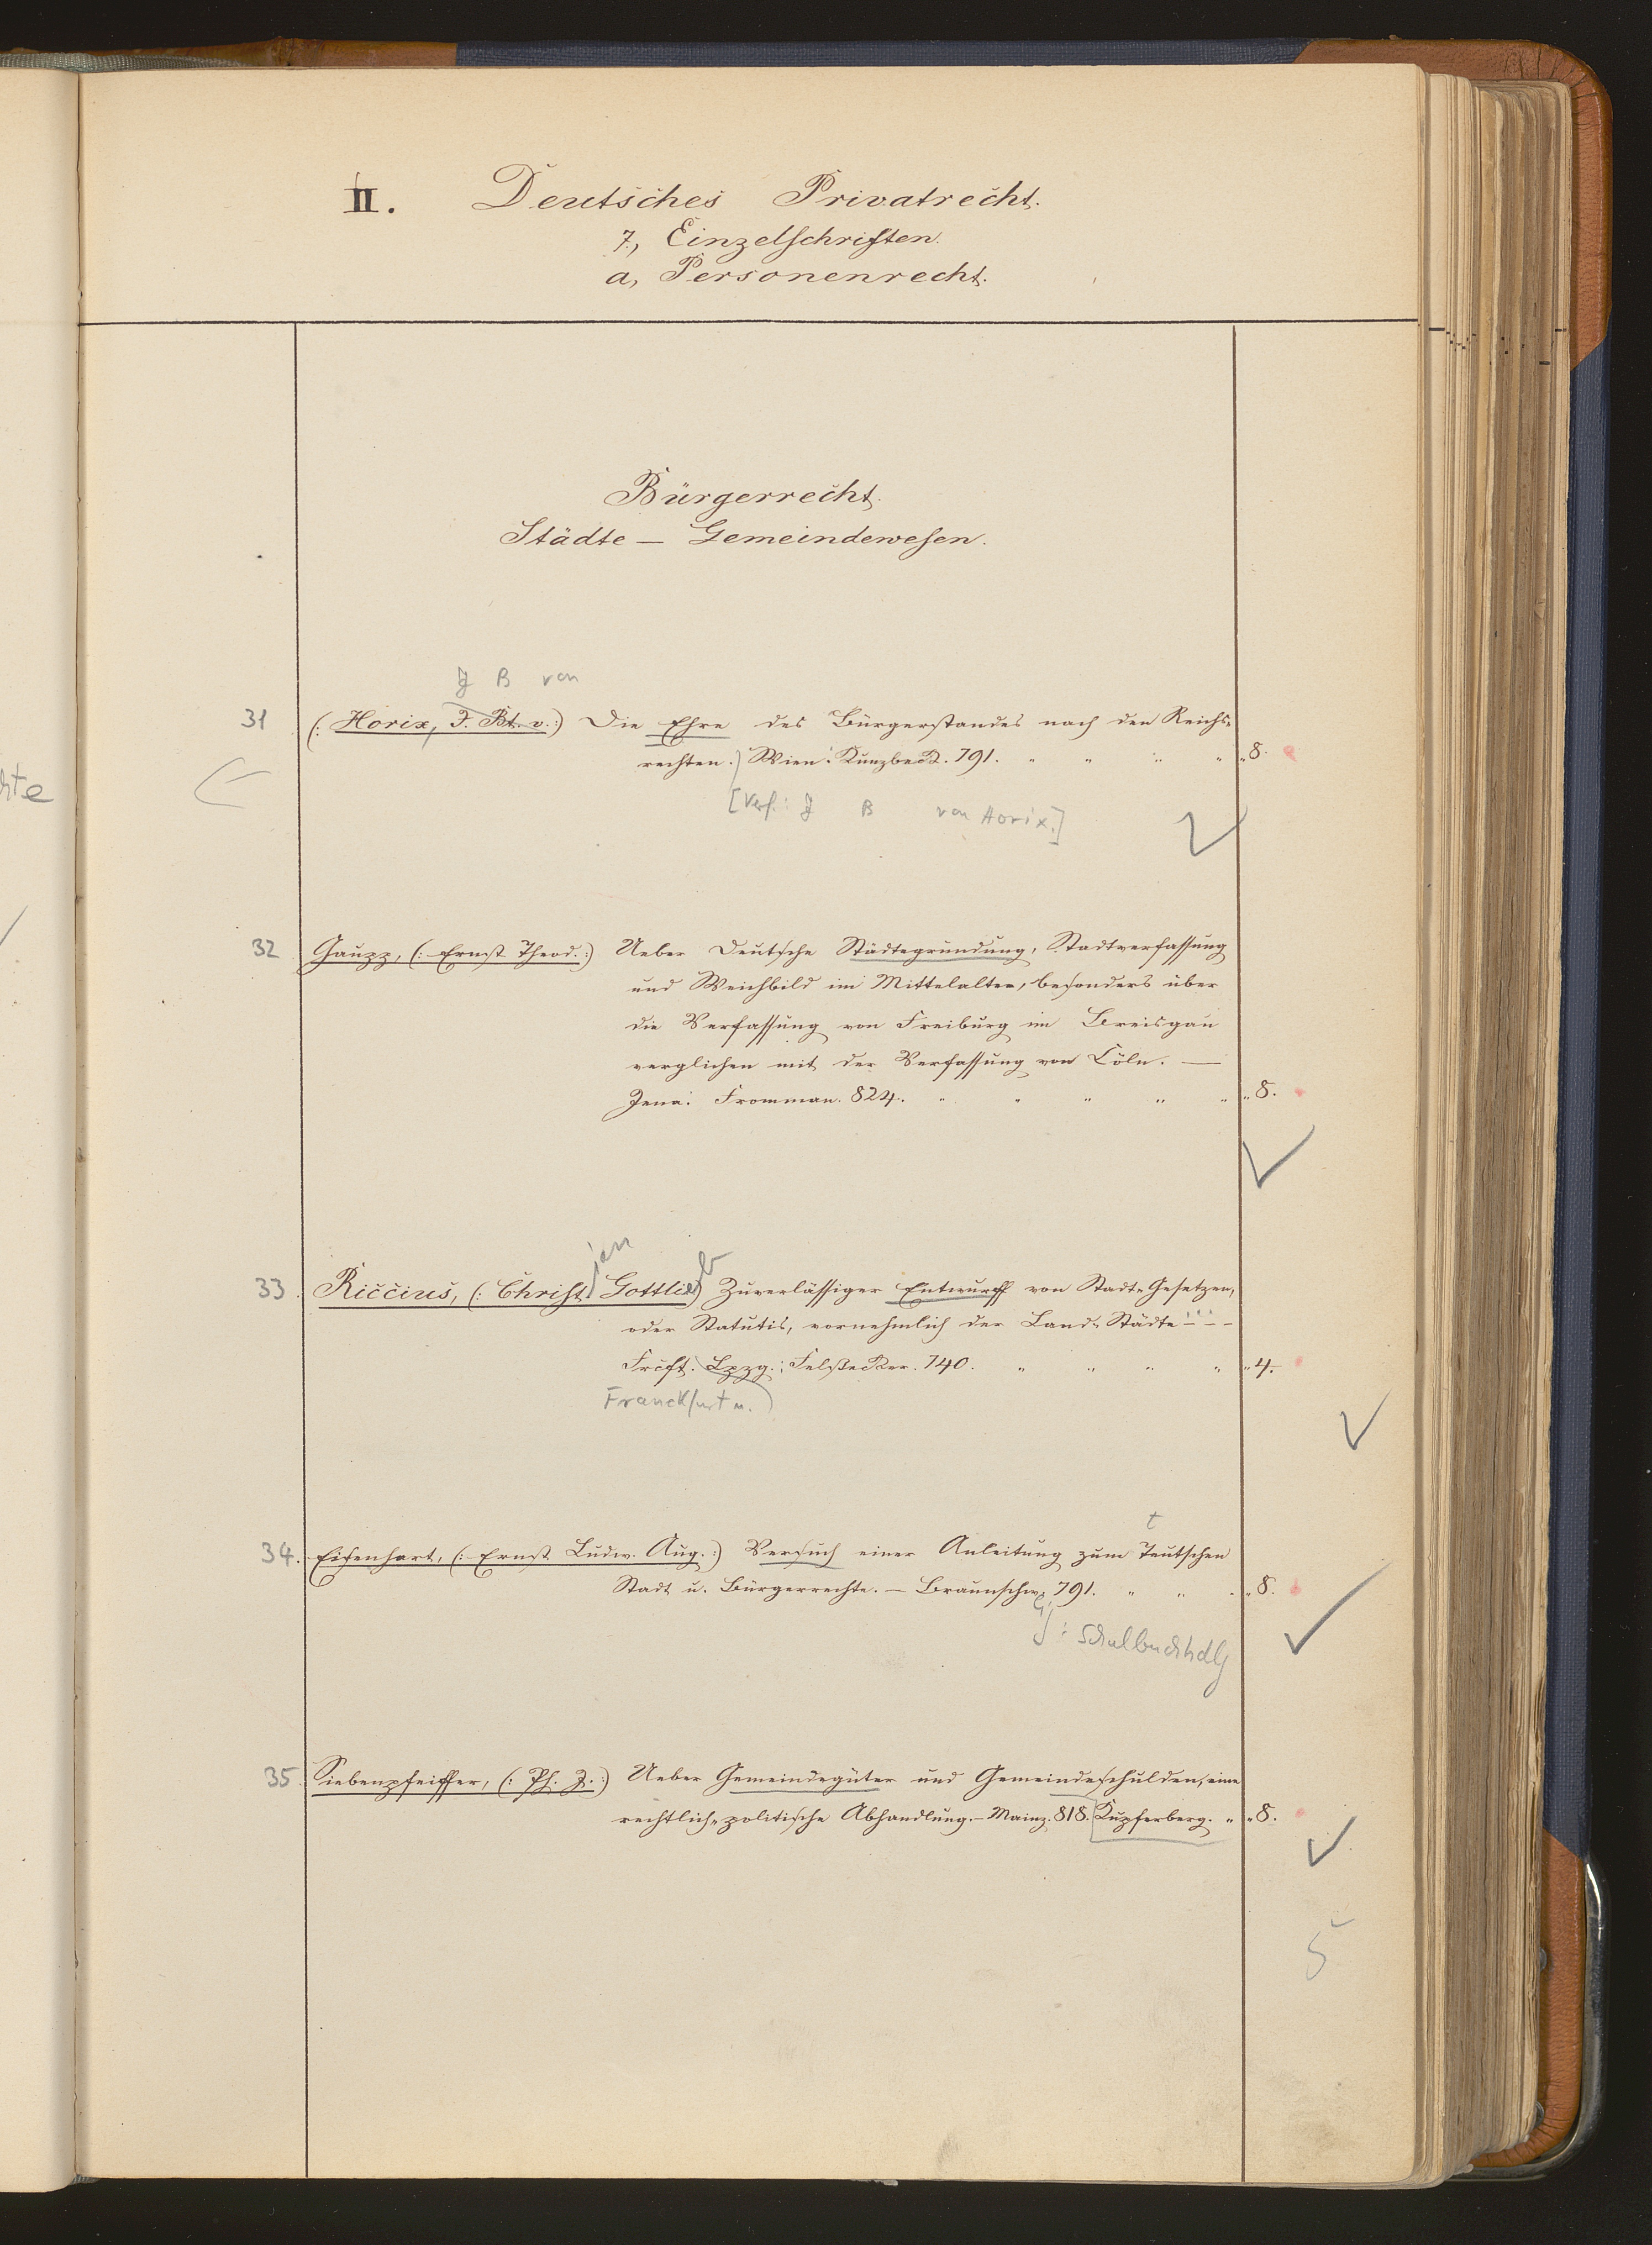 II. Deutsches Privatrecht.
7, Einzelschriften.
a, Personenrecht.
Bürgerrecht.
Städte – Gemeindewesen.
J B von
31 (: Horix, J. Bt. v. :) Die Ehre des Bürgerstandes nach den Reichs-
rechten.) Wien: Kunzbeck. 791. " " " " " 8.
hte
[Verf.: J B von Horix.]
32 Gaupp, (: Ernst Theod. :) Ueber Deutsche Städtegründung, Stadtverfassung
und Weichbild im Mittelalter, besonders über
die Verfassung von Freiburg im Breisgau
verglichen mit der Verfassung von Cöln. —
Jena: Fromman. 824. " " " " " " 8.
ian b
33. Riccius, (: Christ. Gottlieb) Zuverlässiger Entwurff von Stadt-Gesetzen,
oder Statutis, vornehmlich der Land-Städte ...
Frcft. Lpzg.: Felßecker. 740. " " " " " 4.
Franckfurt u.
t
34. Eisenhart, (: Ernst Ludw. Aug. :) Versuch einer Anleitung zum Teutschen
Stadt u. Bürgerrechte. – Braunschw. 791. " " " " 8.
g: Schulbuchhdlg
35. Siebenpfeiffer, (: Ph. J. :) Ueber Gemeindegüter und Gemeindeschulden, eine
rechtlich-politische Abhandlung. – Mainz. 818. [Kupferberg. " " 8.
5